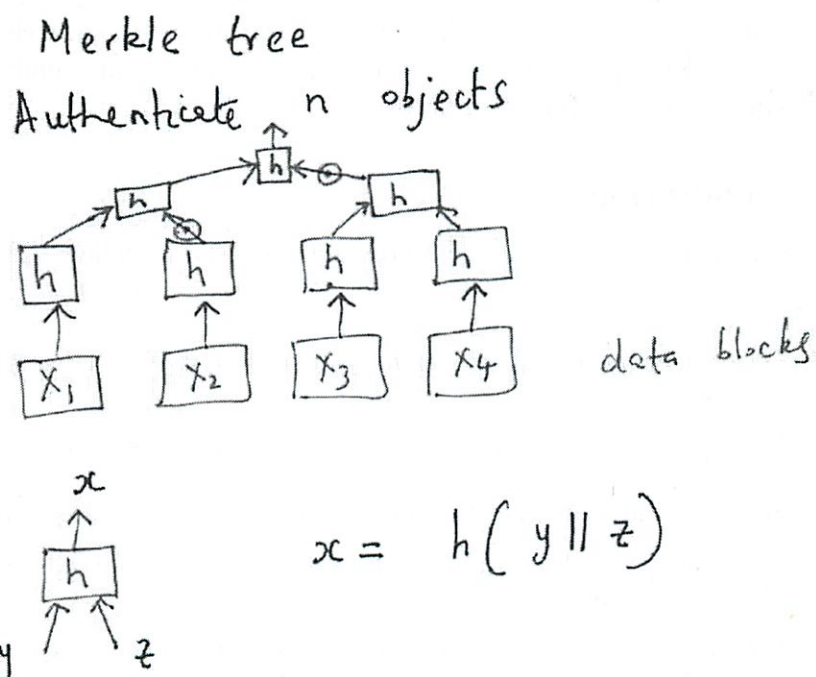 Merkle tree
Authenticate n objects
h
h h
h h h h
X₁ X₂ X₃ X₄ data blocks
x
h x = h(y || z)
y z